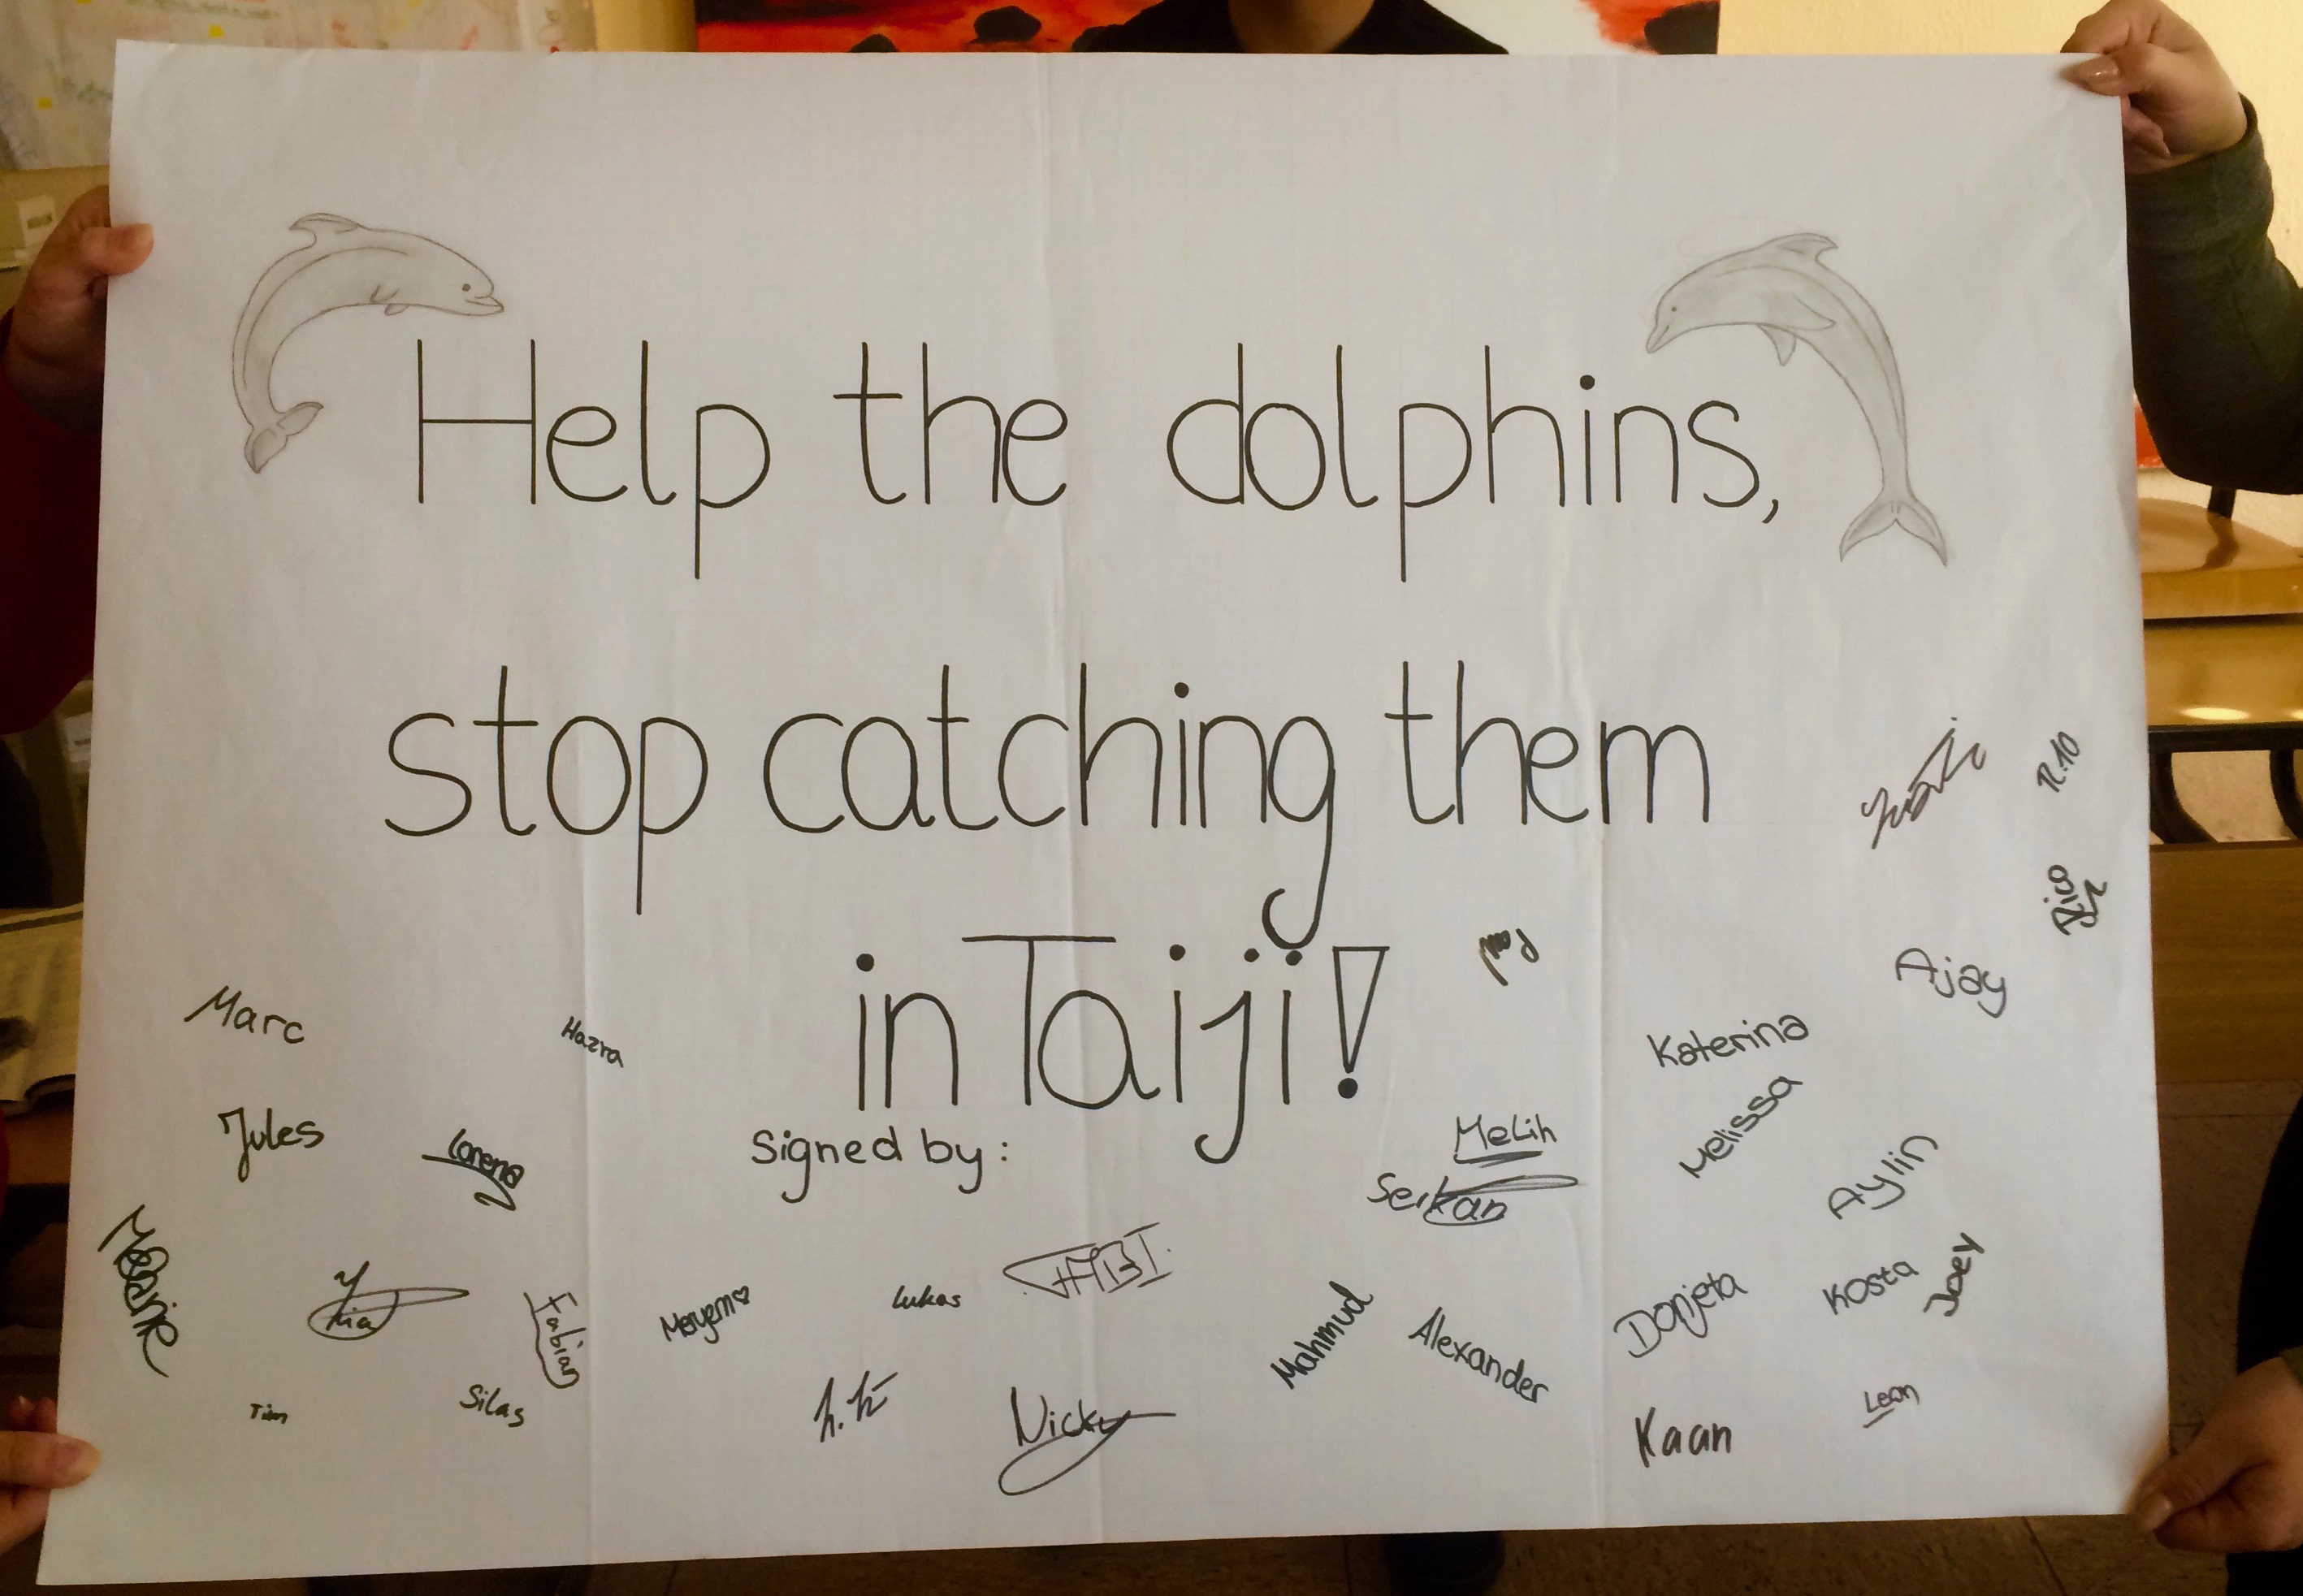 Help the dolphins,
stop catching them
in Taiji!
Signed by:
Marc
Hazra
Jules
Lorena
Melanie
Fabian
Tim
Silas
Meryem
Lukas
FABI
h.k
Nicky
Melih
Serkan
Mahmud
Alexander
Katerina
Melissa
Ajay
Rico
Aylin
Donjeta
Kosta
Joey
Kaan
Leon